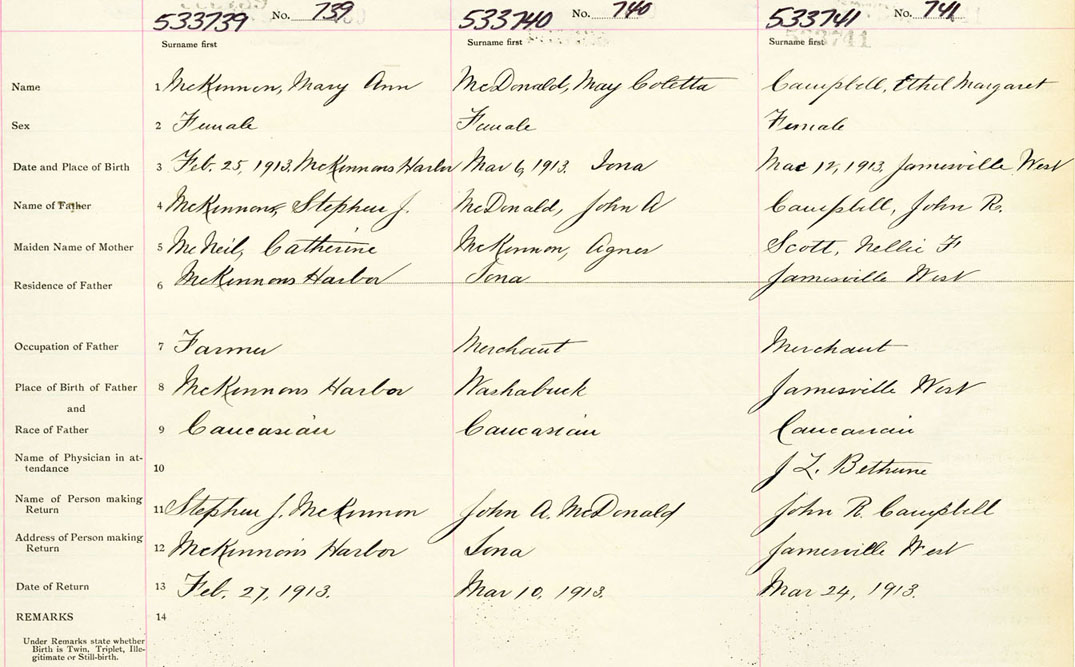 533739 No. 739 533740 No. 740 533741 No. 741
Surname first Surname first Surname first
Name 1 McKinnon, Mary Ann McDonald, May Coletta Campbell, Ethel Margaret
Sex 2 Female Female Female
Date and Place of Birth 3 Feb. 25, 1913. McKinnons Harbor Mar 6, 1913. Iona Mar 12, 1913, Jamesville West
Name of Father 4 McKinnon, Stephen J. McDonald, John A Campbell, John R.
Maiden Name of Mother 5 McNeil, Catherine McKinnon, Agnes Scott, Nellie F
Residence of Father 6 McKinnons Harbor Iona Jamesville West
Occupation of Father 7 Farmer Merchant Merchant
Place of Birth of Father 8 McKinnons Harbor Washabuck Jamesville West
and
Race of Father 9 Caucasian Caucasian Caucasian
Name of Physician in at-
tendance 10 J L. Bethune
Name of Person making
Return 11 Stephen J. McKinnon John A. McDonald John R. Campbell
Address of Person making
Return 12 McKinnon's Harbor Iona Jamesville West
Date of Return 13 Feb. 27, 1913. Mar 10, 1913. Mar 24, 1913.
REMARKS 14
Under Remarks state whether
Birth is Twin, Triplet, Ille-
gitimate or Still-birth.